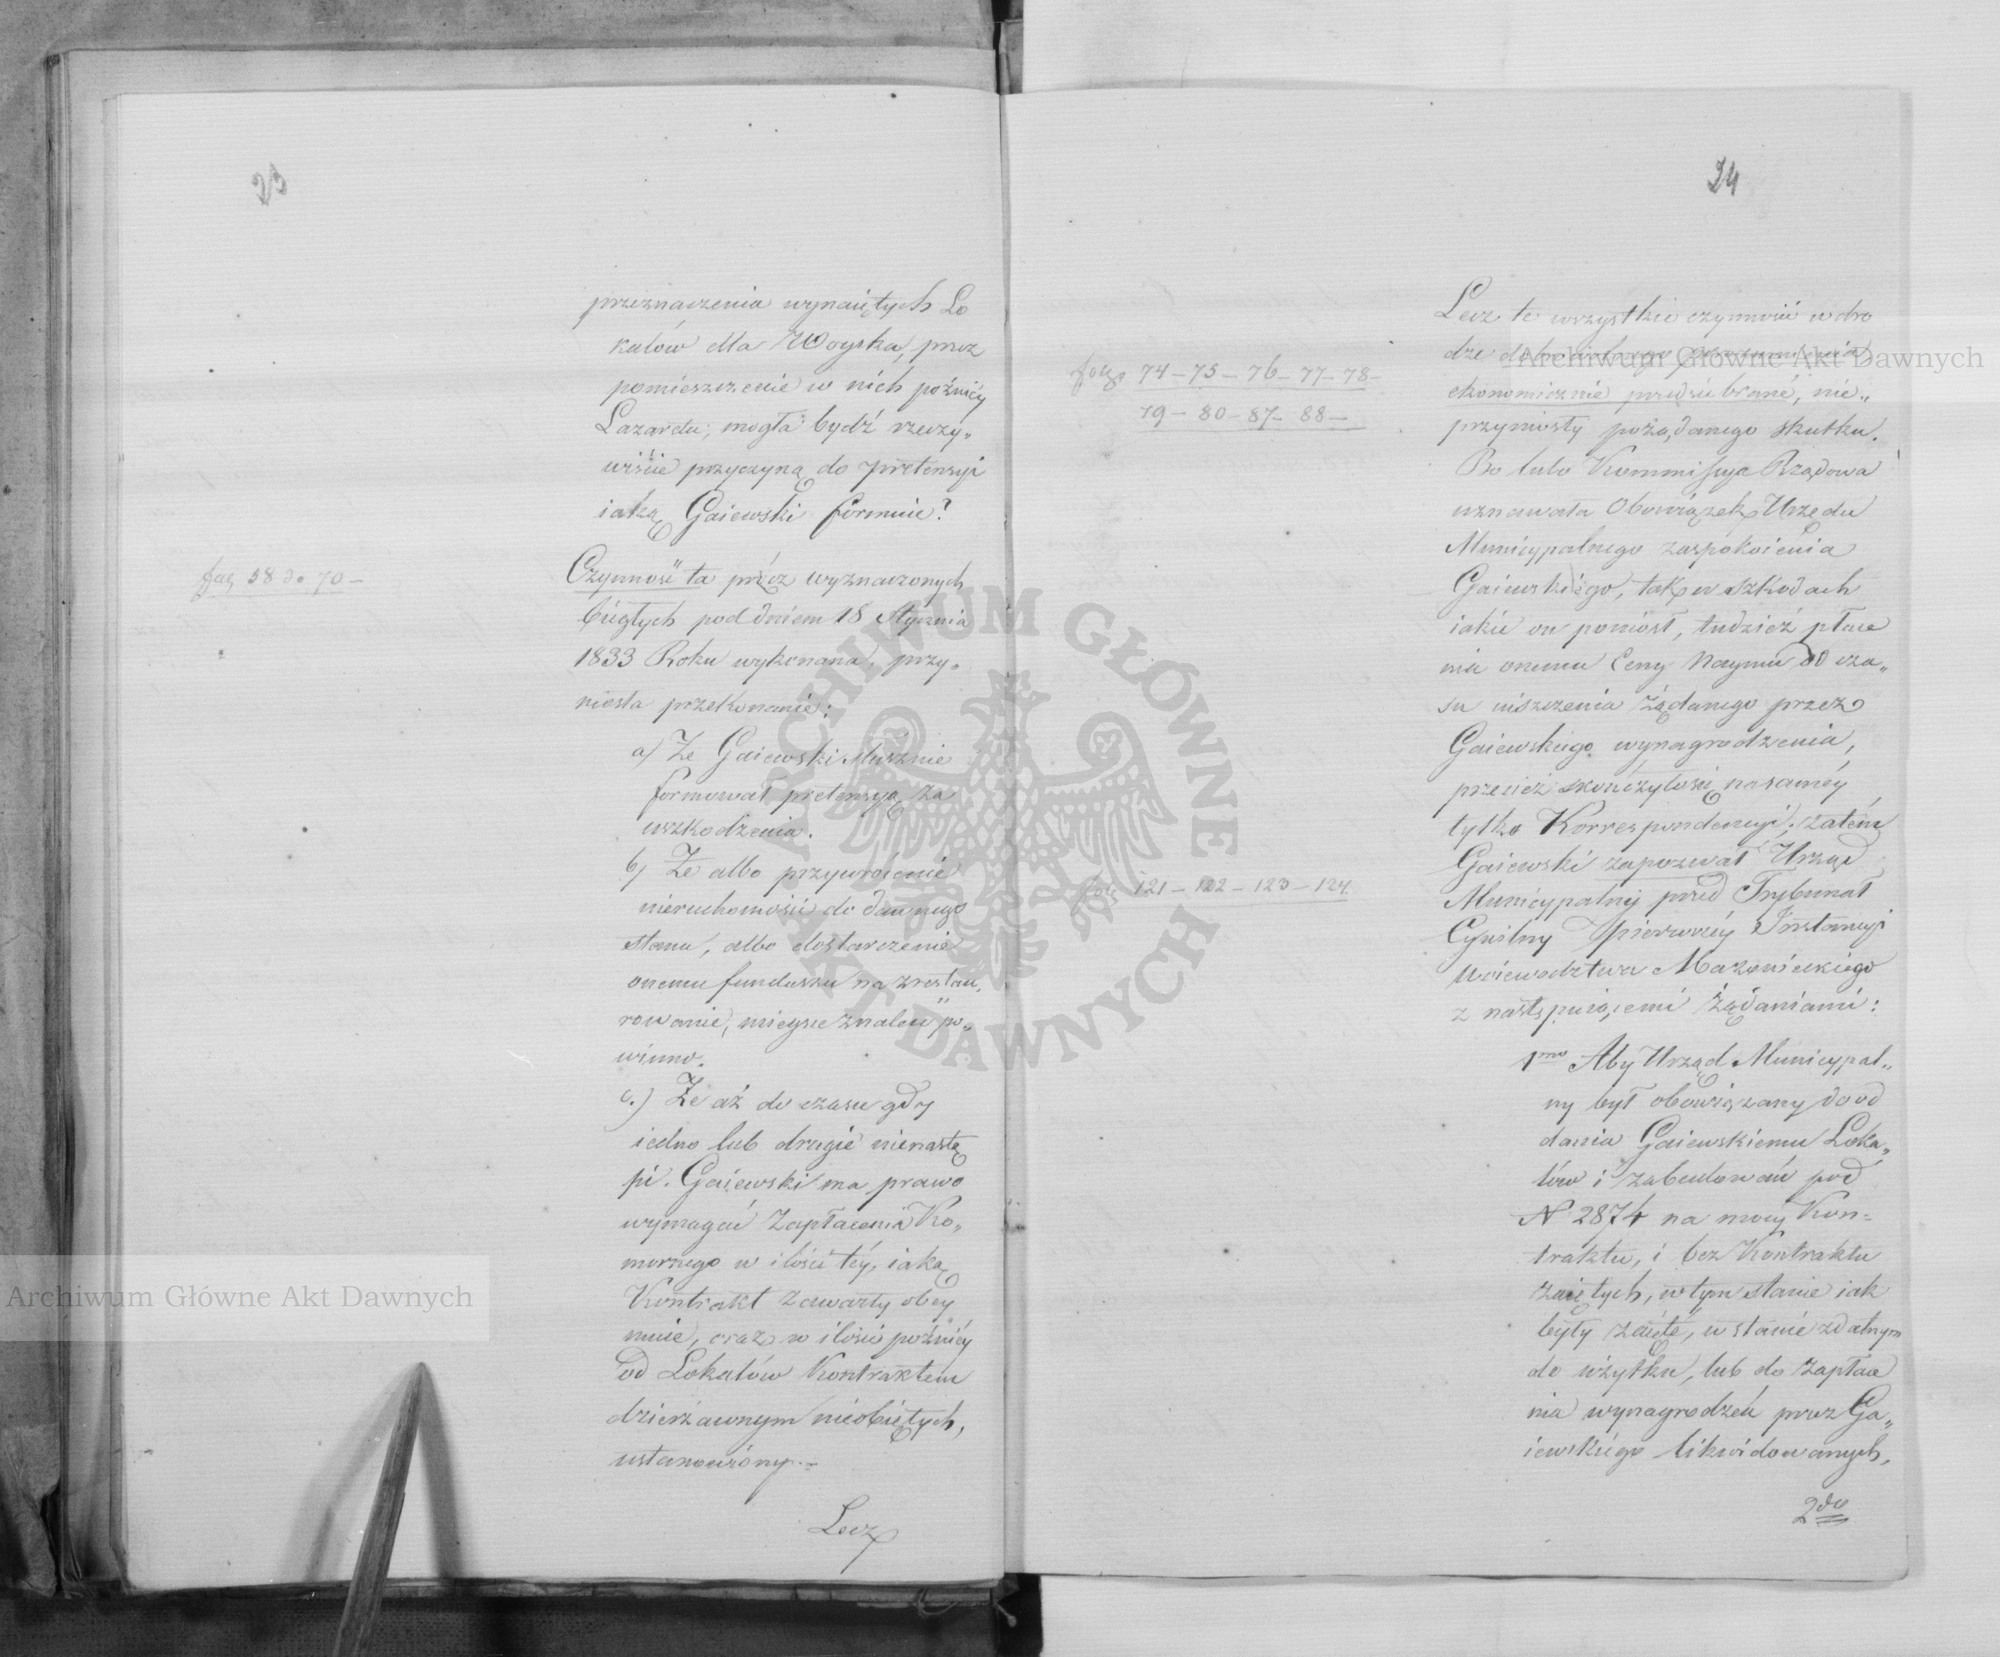 23
przeznaczenia wynaiętych Lo
kalów dla Woyska, przez
pomieszczenie w nich poźniéy
Lazaretu, mogła bydź rzeczy„
wiście przyczyną do pretensyi
iaką Gaiewski formuie?
fol. 58 do 70 —
Czynność ta przez wyznaczonych
biegłych pod dniem 18 Stycznia
1833 Roku wykonana, przy„
niosła przekonanie:
a) Że Gaiewski słusznie
formował pretensyą za
uszkodzenia.
b) Że albo przywrócenie
nieruchomości do dawnego
stanu, albo dostarczenie
onemu funduszu na zrestau„
rowanie, mieysce znaleść po„
winno.
c.) Że aż do czasu gdy
iedno lub drugie nienastą
pi. Gaiewski ma prawo
wymagać zapłacenia Ko„
mornego w ilości téy, iaką
Kontrakt zawarty obey
muie, oraz w ilości poźniéy
od Lokalów Kontraktem
dzierżawnym nieobiętych,
ustanowiony.—
Lecz
24
Lecz te wszystkie czynności w dro
dze dobrowolnego porozumienia
ekonomicznie przedsiebrane, nie„
przyniosły pożądanego skutku.
fol. 74 — 75 — 76 — 77 — 78 —
79 — 80 — 87 — 88 —
Bo lubo Kommissya Rządowa
uznawała Obowiązek Urzędu
Municypalnego zaspokoienia
Gaiewskiego, tak w szkodach
iakie on poniósł, tudzież płace
nia onemu Ceny Naymu od cza„
su uiszczenia żądanego przez
Gaiewskiego wynagrodzenia,
przecież skończyłosię na saméy
tylko Korrespondencyi; zatém
Gaiewski zapozwał Urząd
fol. 121 — 122 — 123 — 124
Municypalny przed Trybunał
Cywilny Pierwszéy Instancyi
Woiewodztwa Mazowieckiego
z następuiącemi Żądaniami:
1mo Aby Urząd Municypal„
ny był obowiązany do od
dania Gaiewskiemu Loka„
lów i zabudowań pod
N 2874 na mocy Kon=
traktu, i bez Kontraktu
zaiętych, w tym stanie iak
były zaięte, w stanie zdalnym
do użytku, lub do zapłace
nia wynagrodzeń przez Ga„
iewskiego likwidowanych,
2do
ARCHIWUM GŁÓWNE
AKT DAWNYCH
Archiwum Główne Akt Dawnych
Archiwum Główne Akt Dawnych